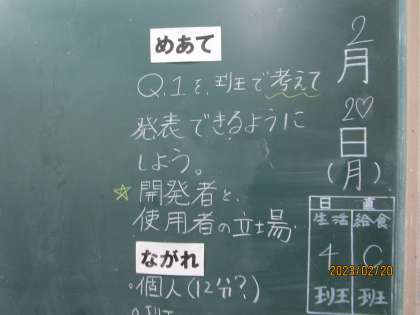 めあて
Q.1を、班で考えて
発表できるように
しよう。
☆開発者と、
使用者の立場.
ながれ
・個人(12分?)
・班
2
月
20♡
日
(月)
日直
生活 給食
4 C
班 班
2023/02/20